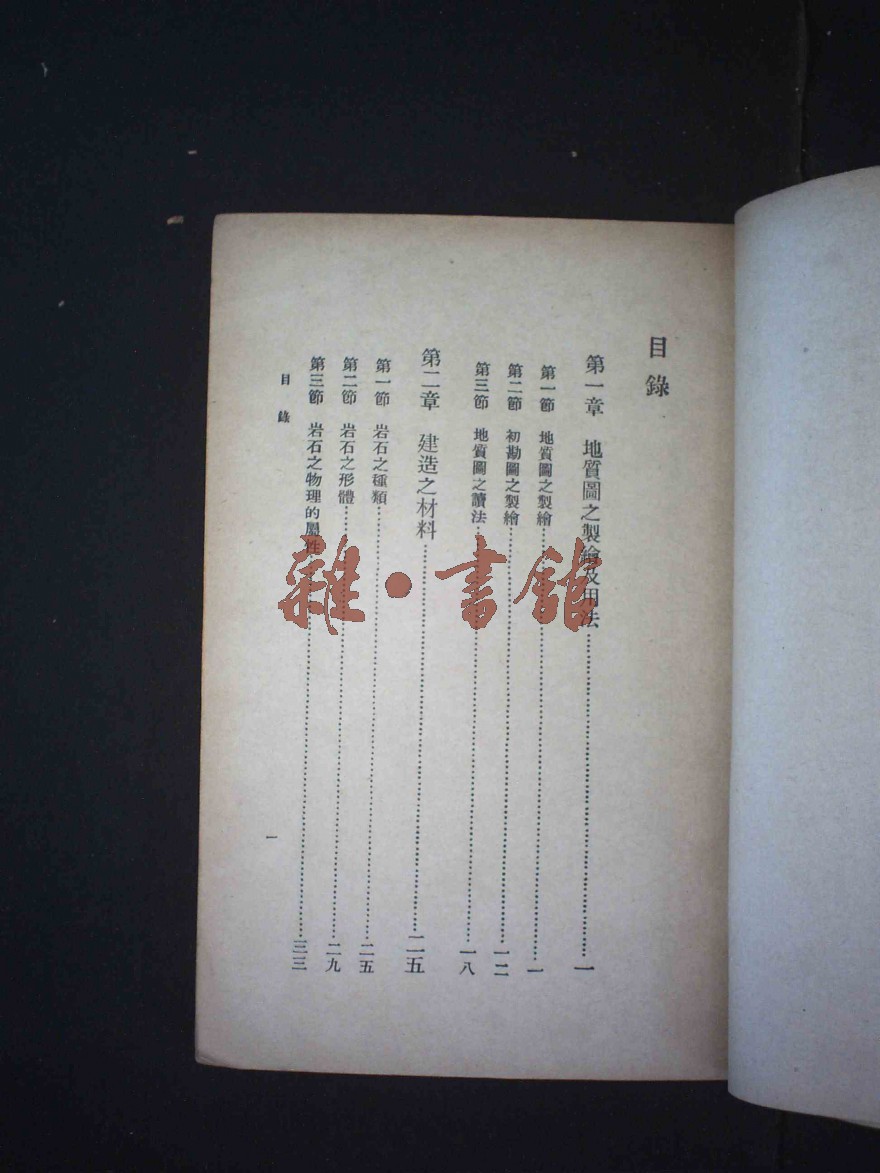 目錄
第一章 地質圖之製繪及用法……一
第一節 地質圖之製繪……一
第二節 初勘圖之製繪……一二
第三節 地質圖之讀法……一八
第二章 建造之材料……二五
第一節 岩石之種類……二五
第二節 岩石之形體……二九
第三節 岩石之物理的屬性……三三
目錄
一
雜·書館